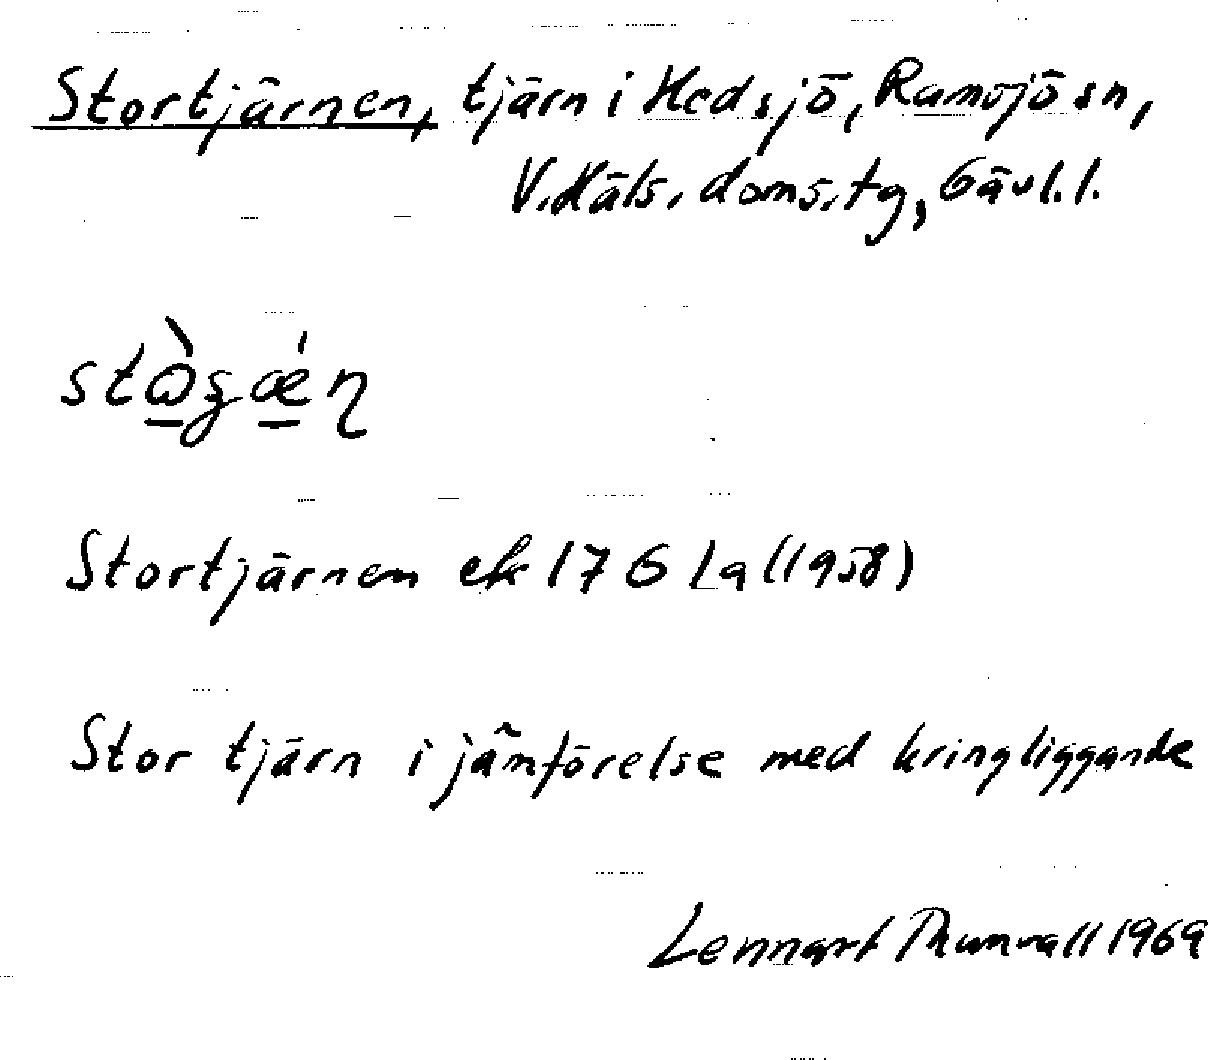 Stortjärnen, tjärn i Hedsjö, Ramsjö sn,
V. Häls. doms. tg, Gävl. l.
Stortjärnen ek 17 G La (1958)
Stor tjärn i jämförelse med kringliggande
Lennart Thunvall 1969